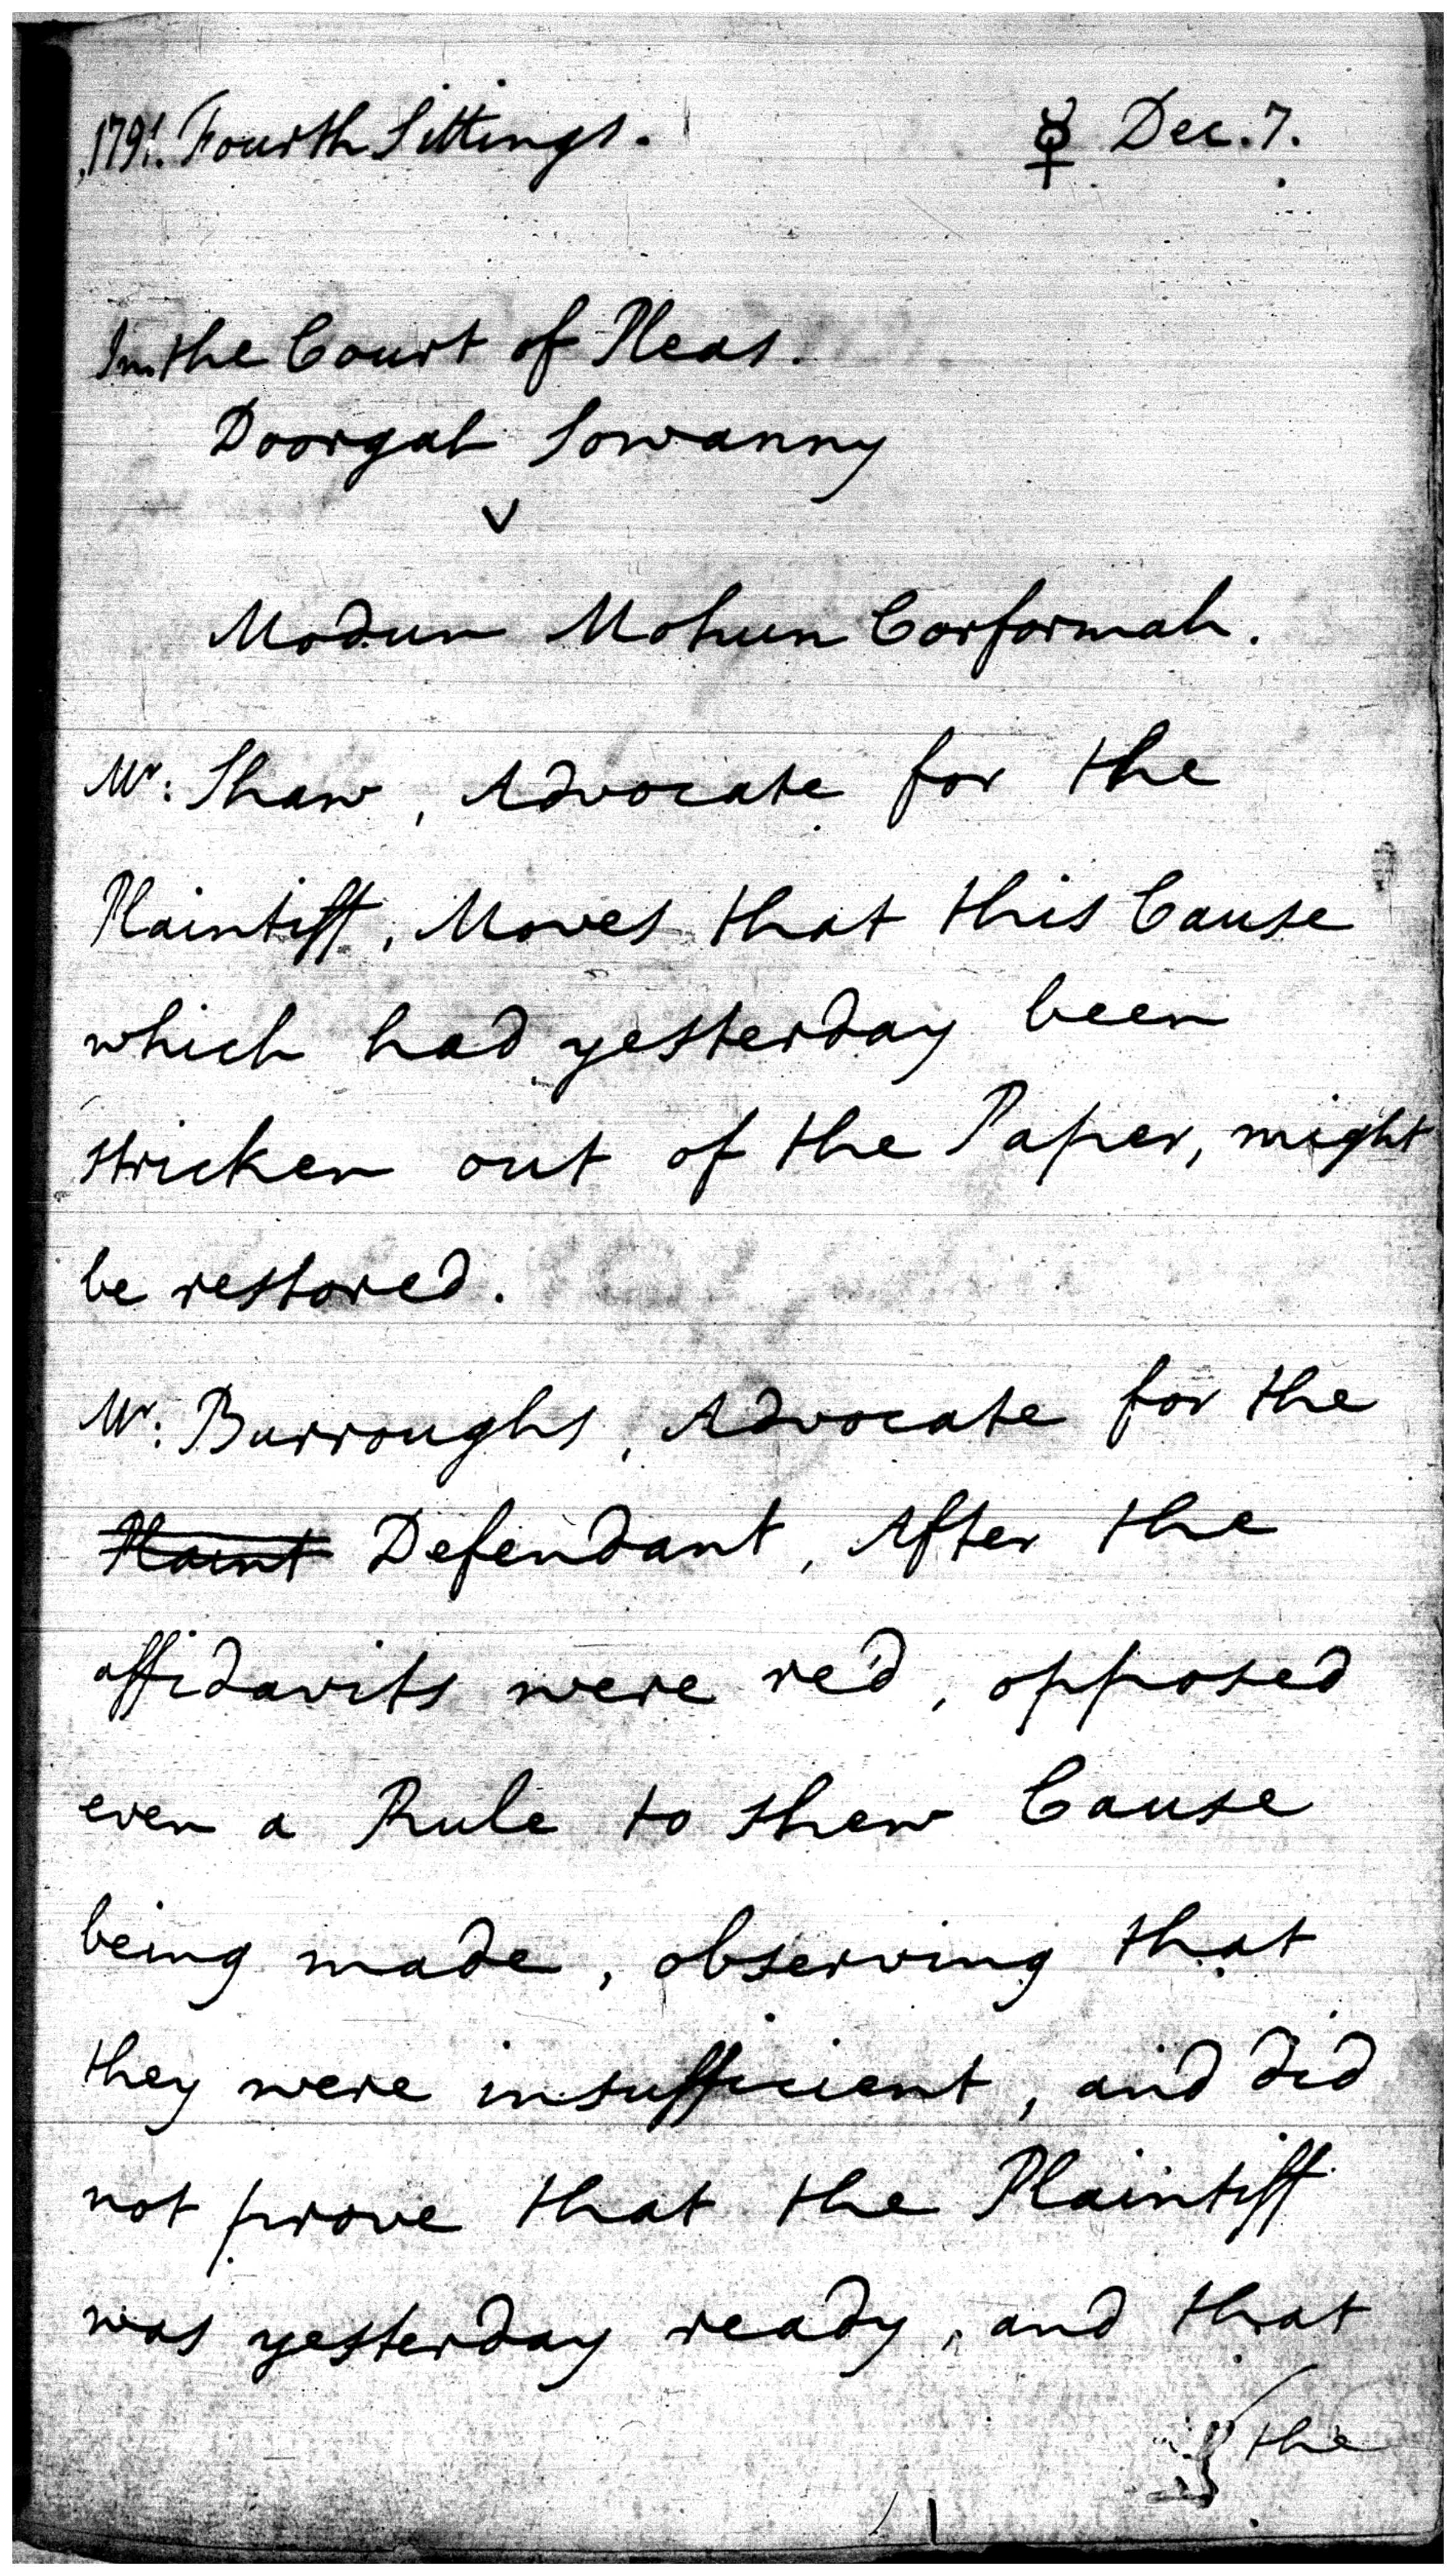 1791. Fourth Sittings. ☿ Dec. 7.
In the Court of Pleas.
Doorgah Sowanny
v
Modun Mohun Corformah.
Mr: Shaw, Advocate for the
Plaintiff, Moves that this Cause
which had yesterday been
stricken out of the Paper, might
be restored.
Mr: Burroughs, Advocate for the
Plaint Defendant, After the
affidavits were re'd, opposed
even a Rule to shew Cause
being made, observing that
they were insufficient, and did
not prove that the Plaintiff
was yesterday ready, and that
the